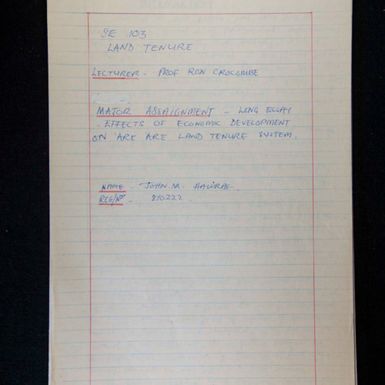 SE 103
LAND TENURE
LECTURER - PROF RON CROCOMBE
MAJOR ASSAIGNMENT - LONG ESSAY
- EFFECTS OF ECONOMIC DEVELOPMENT
ON 'ARE 'ARE LAND TENURE SYSTEM.
NAME - JOHN M.
REG/Nº -